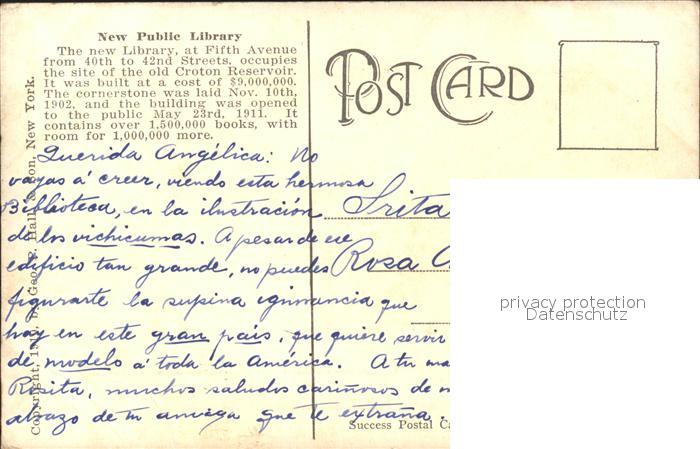 New Public Library
The new Library, at Fifth Avenue
from 40th to 42nd Streets, occupies
the site of the old Croton Reservoir.
It was built at a cost of $9,000,000.
The cornerstone was laid Nov. 10th,
1902, and the building was opened
to the public May 23rd, 1911. It
contains over 1,500,000 books, with
room for 1,000,000 more.
POST CARD
Querida Angélica: No
vayas á creer, viendo esta hermosa
Biblioteca, en la ilustración
de los vichicumas. A pesar de ese
edificio tan grande, no puedes
figurarte la supina ignorancia que
hay en este gran país, que quiere servir
de modelo á toda la América. A tu
Rosita, muchos saludos cariñosos de
abrazo de tu amiga que te extraña.
Srita
Rosa
privacy protection
Datenschutz
Success Postal
Copyright, Geo. P. Hall & Son, New York.